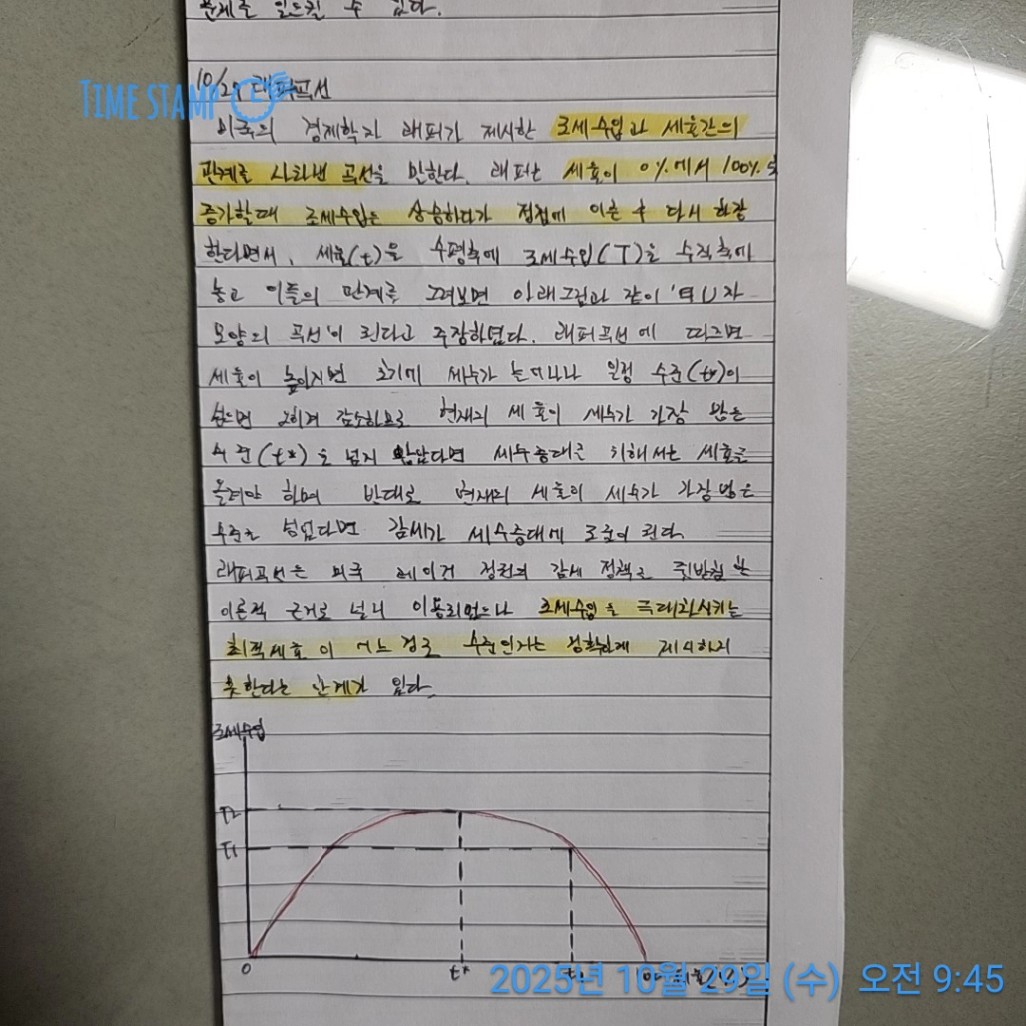 문제를 일으킬 수 있다.
10/29 래퍼곡선
TIME STAMP
미국의 경제학자 래퍼가 제시한 조세수입과 세율간의
관계를 나타낸 곡선을 말한다. 래퍼는 세율이 0%에서 100%로
증가할때 조세수입은 상승하다가 정점에 이른 후 다시 하강
한다면서, 세율(t)을 수평축에 조세수입(T)을 수직축에
놓고 이들의 관계를 그려보면 아래그림과 같이 '역U'자
모양의 곡선이 된다고 주장하였다. 래퍼곡선에 따르면
세율이 높아지면 초기에 세수가 늘어나나 일정 수준(t*)이
넘으면 오히려 감소하므로 현재의 세율이 세수가 가장 많은
수준(t*)을 넘지 않았다면 세수증대를 위해서는 세율을
올려야 하며 반대로 현재의 세율이 세수가 가장 많은
수준을 넘었다면 감세가 세수증대에 도움이 된다.
래퍼곡선은 미국 레이건 정권의 감세 정책을 뒷받침 한
이론적 근거로 널리 이용되었으나 조세수입을 극대화시키는
최적세율이 어느 정도 수준인가는 정확하게 제시하지
못한다는 한계가 있다.
조세수입
T2
T1
0 t*
2025년 10월 29일 (수) 오전 9:45